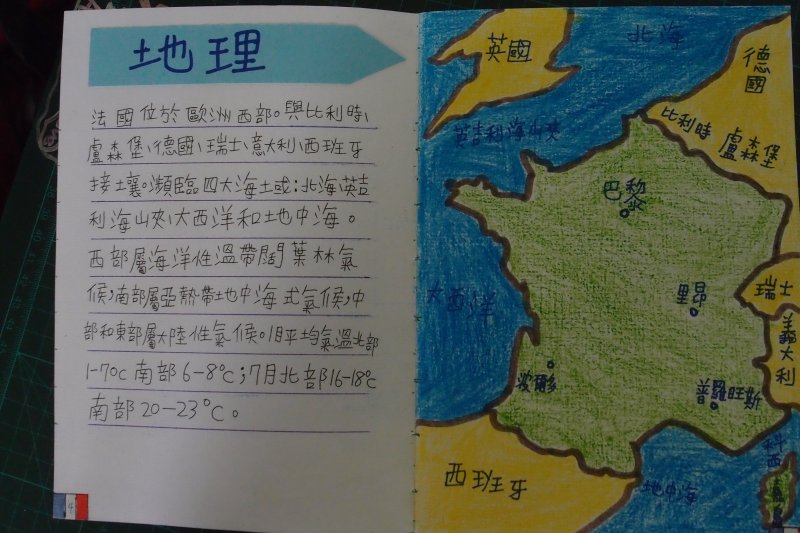 地理
法國位於歐洲西部。與比利時、
盧森堡、德國、瑞士、意大利、西班牙
接壤。瀕臨四大海土或：北海、英吉
利海山夾、大西洋和地中海。
西部屬海洋性溫帶闊葉林氣
候，南部屬亞熱帶地中海式氣候，中
部和東部屬大陸性氣候。1月平均氣溫北部
1-7°C南部6-8°C；7月北部16-18°C
南部20-23°C。
4
英國
北海
德國
英吉利海山夾
比利時
盧森堡
巴黎
大西洋
里昂
瑞士
義大利
波爾多
普羅旺斯
西班牙
地中海
科西嘉島